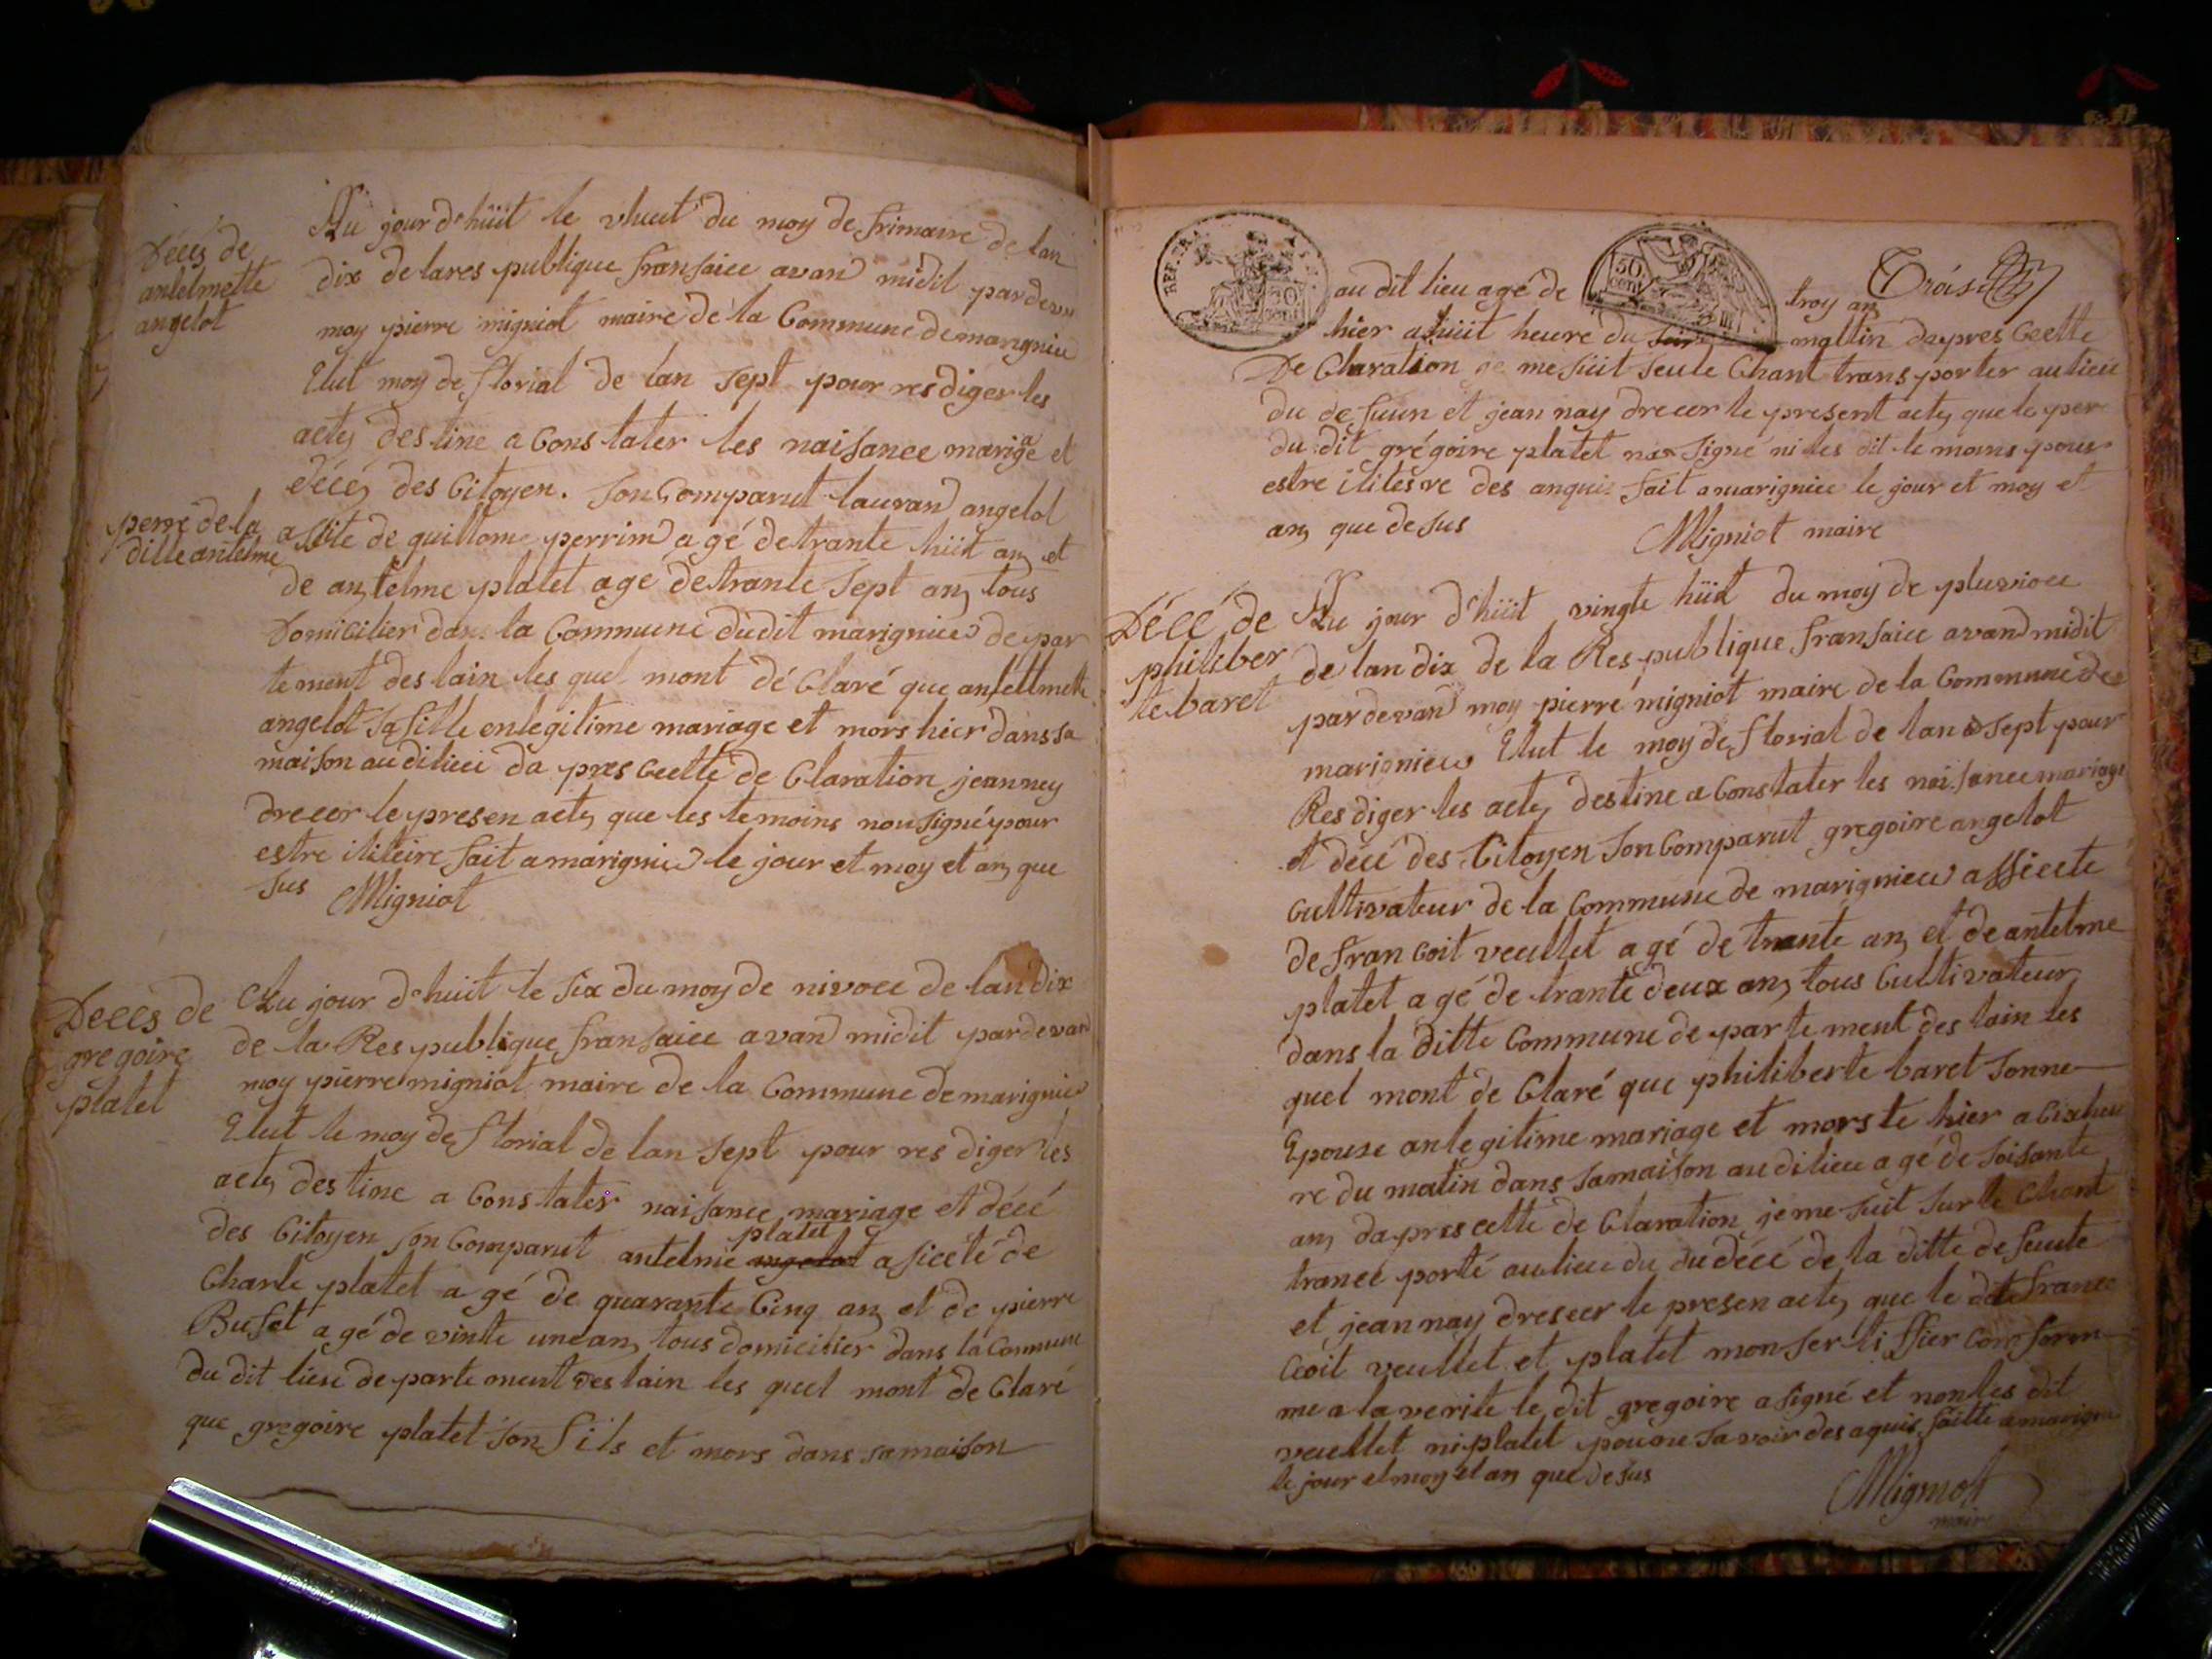 Décés de
antelmette
angelot
Au jour d'hüit le vhuit du moy de frimaire de lan
dix de lares publique fransaice avan midit pardevan
moy pierre migniot maire de la Commune demarignieu
Elut moy de florial de lan sept pour res diger les
actes destine a Constater les naisance mariage et
décés des Citoyen. Son Comparut lauran angelot
perre de la
ditte antelme
assite de guillome perrin agé detrante hüit an et
de antelme platet age detrante sept an tous
Domicilier dans la Commune dudit marignieu de par
tement des lain les quel mont dé Claré que antellmette
angelot sa fille enlegitime mariage et mors hier dans sa
maison audilieu da pres Ceette de Claration jeanney
drecer le presen acte que les temoins nonsigné pour
estre iliteire fait a marignieu le jour et moy et an que
sus Migniot
Decès de
gregoire
platet
Au jour d'huit le six du moy de nivoce de lan dix
de la Res publique fransaice avan midit pardevan
moy pierre migniot maire de la Commune de marignieu
Elut le moy de florial de lan sept pour res diger les
acte destine a Constater naisance mariage et décé
des Citoyen son Comparut antelme angelot platet asicété de
Charle platet agé de quarante Cinq an et de pierre
Bufet agé de vinte unean tous domicilier dans la Commune
du dit lieu departement des lain les quel mont de Claré
que gregoire platet son fils et mors dans samaison
REP. FRA.
50
cent
Troisi
au dit lieu agé de troy an
hier a hüit heure du soir mattin dapres Ceette
De Claration je me suit seule Chant trans porter aulieu
du defuun et jean nay drecer le present acte que le per
du dit grégoire platet na signé ni les dit te moins pour
estre ilitésre des anquis fait amarignieu le jour et moy et
an que de sus
Migniot maire
Décé de
philiber
te baret
Au jour d'hüit vingte hüit du moy de pluvioce
de lan dix de la Res publique fransaice avand midit
par devan moy pierre migniot maire de la Commune de
marignieu Elut le moy de florial de lan sept pour
Res diger les acte destine a Constater les naisance mariage
et décé des Citoyen son Comparut gregoire angelot
Cultivateur de la Commune de marignieu assicete
de fran Coit veullet agé de trante an et de antelme
platet agé de trante deux an tous Cultivateur
dans la ditte Commune de parte ment des lain les
quel mont de Claré que philiberte baret sonne
Epouse anlegitime mariage et morste hier a Cix heu
re du matin dans samaison audilieu agé de soisante
an dapres cette de Claration je me suit sur le Chant
trancé porté aulieu du dudécé de la ditte de feunte
et jean nay dreseer le presen acte que le dit france
Ceoit veullet et platet mon serti ffier Com form
me a la verite le dit gregoire a signé et non les dit
veullet ni platet pour ne savoir des aquis faitte amarign
le jour et moy et an que de sus
Migniot
maire